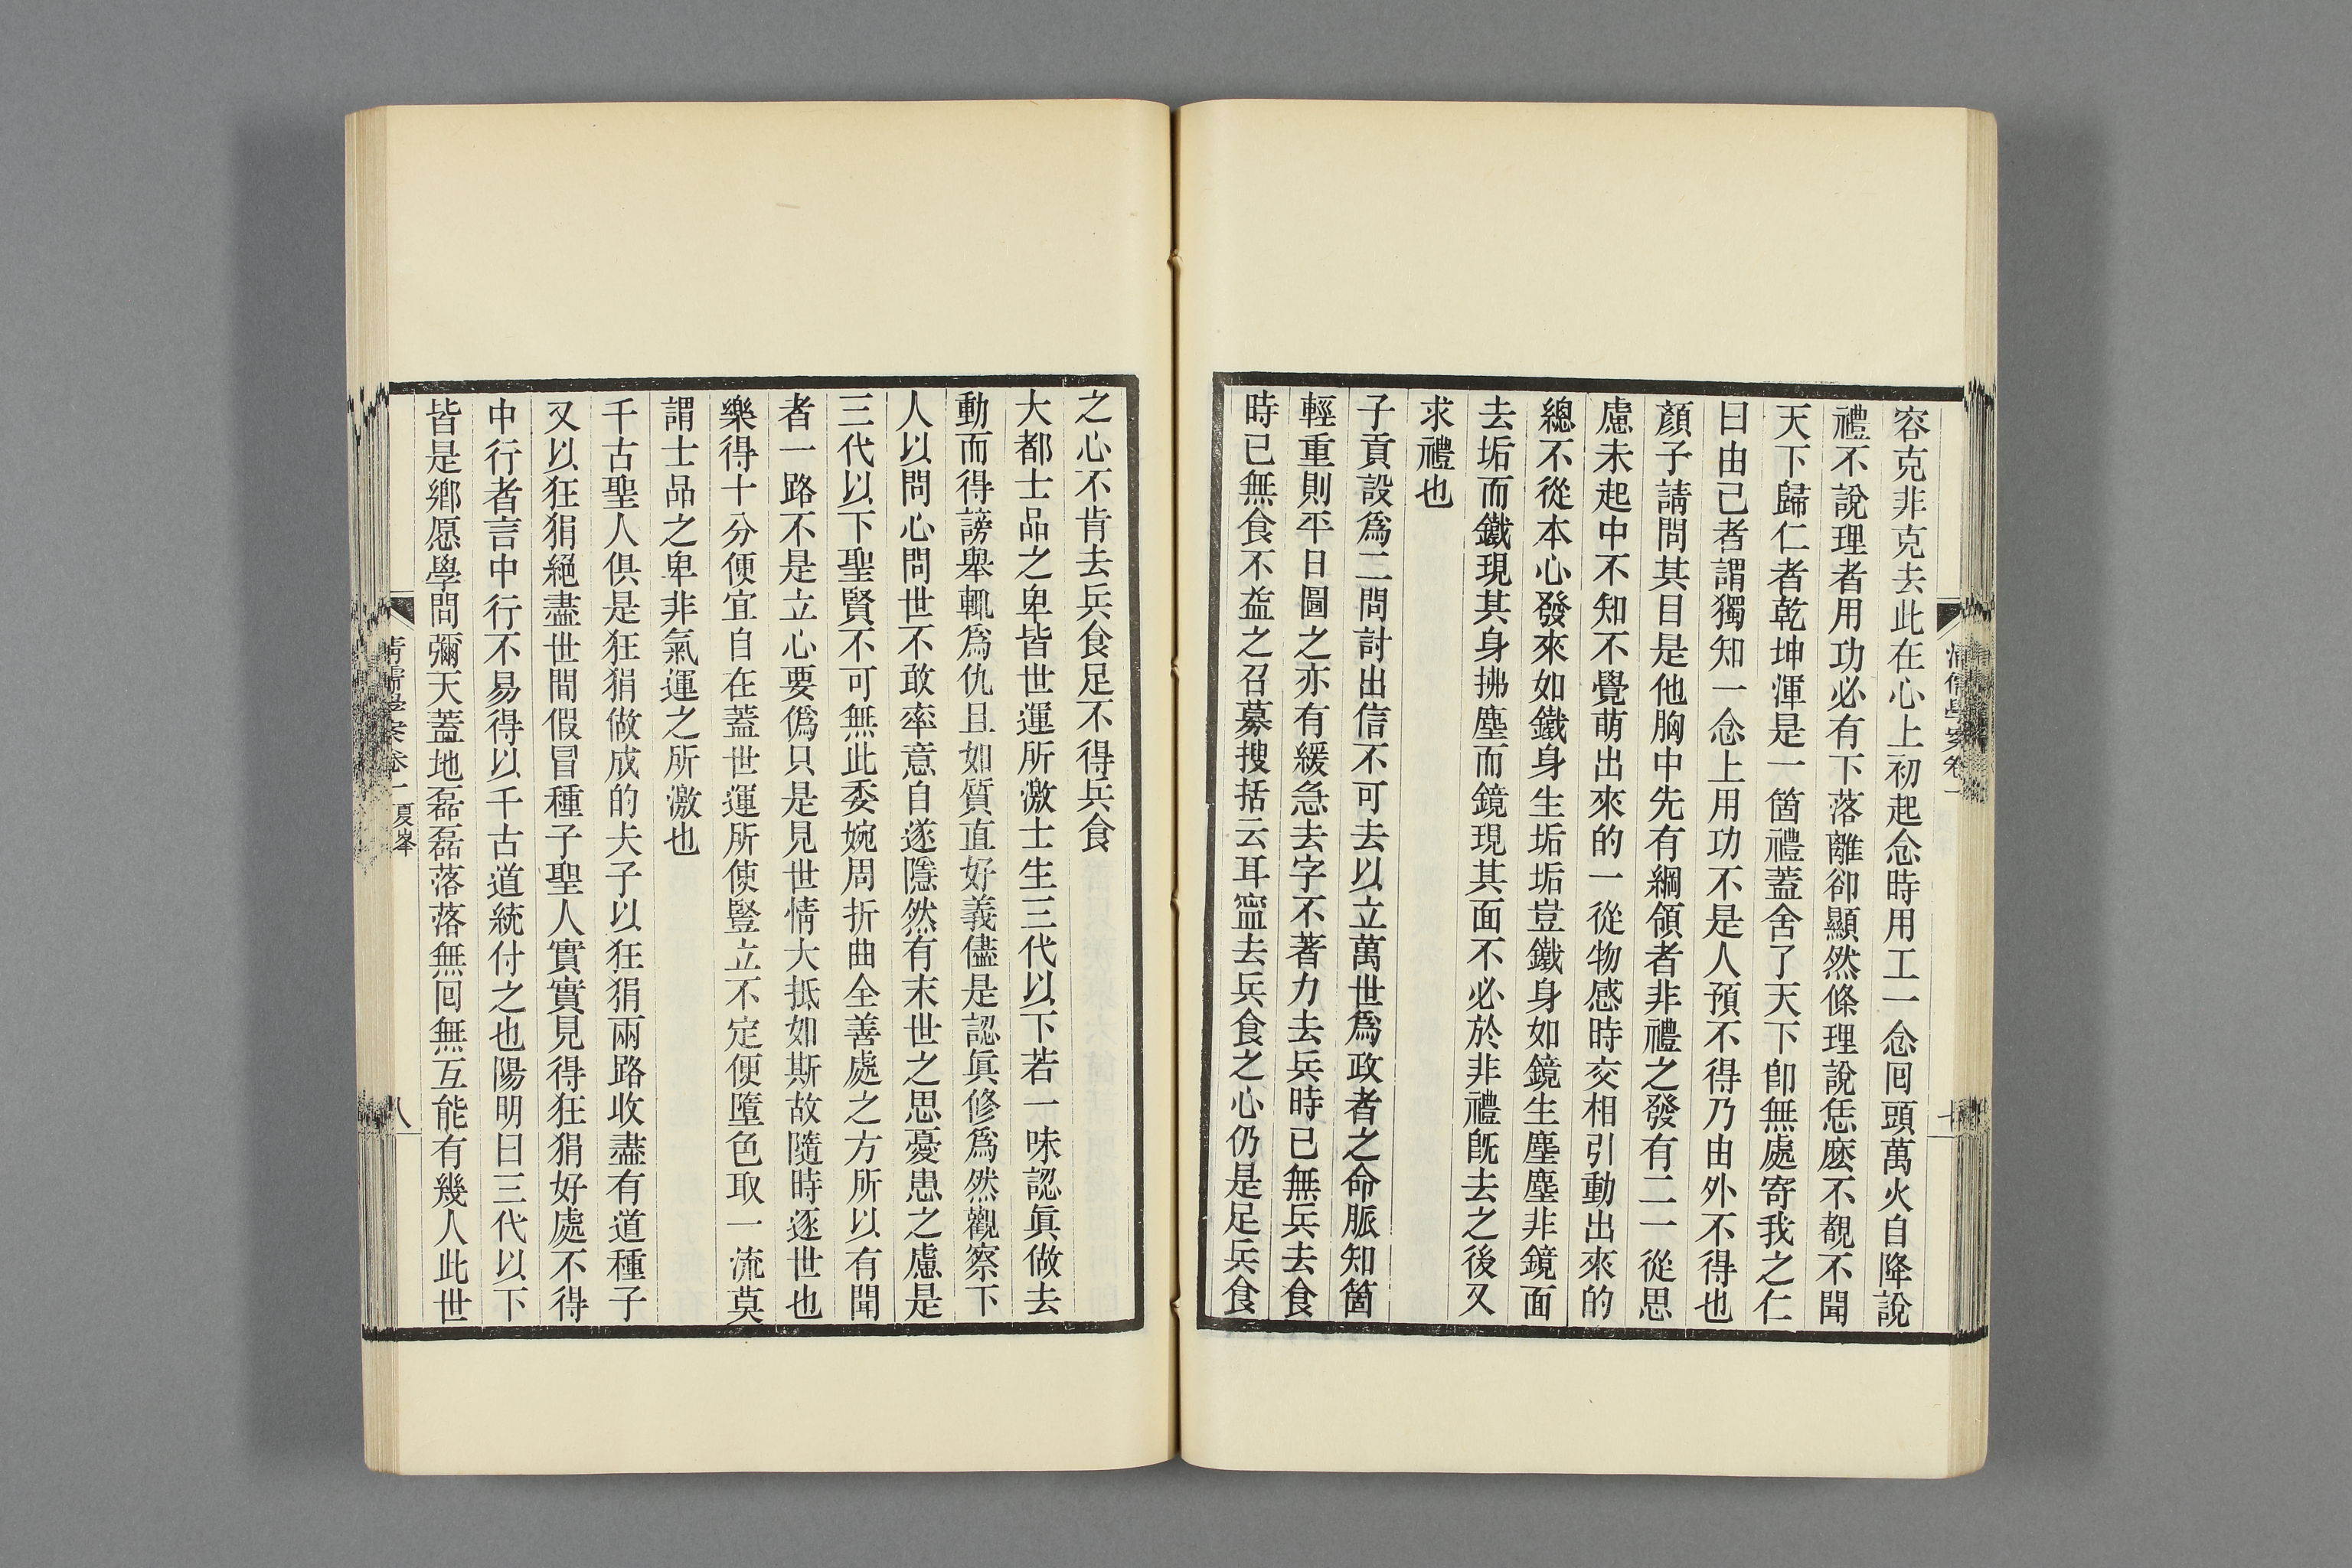 容克非克去此在心上初起念時用工一念回頭萬火自降說
禮不說理者用功必有下落離卻顯然條理說恁麽不覩不聞
天下歸仁者乾坤渾是一箇禮蓋舍了天下卽無處寄我之仁
曰由己者謂獨知一念上用功不是人預不得乃由外不得也
顏子請問其目是他胸中先有綱領者非禮之發有二一從思
慮未起中不知不覺萌出來的一從物感時交相引動出來的
總不從本心發來如鐵身生垢垢豈鐵身如鏡生塵塵非鏡面
去垢而鐵現其身拂塵而鏡現其面不必於非禮旣去之後又
求禮也
子貢設爲二問討出信不可去以立萬世爲政者之命脈知箇
輕重則平日圖之亦有緩急去字不著力去兵時已無兵去食
時已無食不益之召募搜括云耳甯去兵食之心仍是足兵食
清儒學案卷一
七
之心不肯去兵食足不得兵食
大都士品之卑皆世運所激士生三代以下若一味認眞做去
動而得謗舉輒爲仇且如質直好義儘是認眞修爲然觀察下
人以問心問世不敢率意自遂隱然有末世之思憂患之慮是
三代以下聖賢不可無此委婉周折曲全善處之方所以有聞
者一路不是立心要僞只是見世情大抵如斯故隨時逐世也
樂得十分便宜自在蓋世運所使豎立不定便墮色取一流莫
謂士品之卑非氣運之所激也
千古聖人俱是狂狷做成的夫子以狂狷兩路收盡有道種子
又以狂狷絕盡世間假冒種子聖人實實見得狂狷好處不得
中行者言中行不易得以千古道統付之也陽明曰三代以下
皆是鄕愿學問彌天蓋地磊磊落落無回無互能有幾人此世
清儒學案卷一 夏峯
八